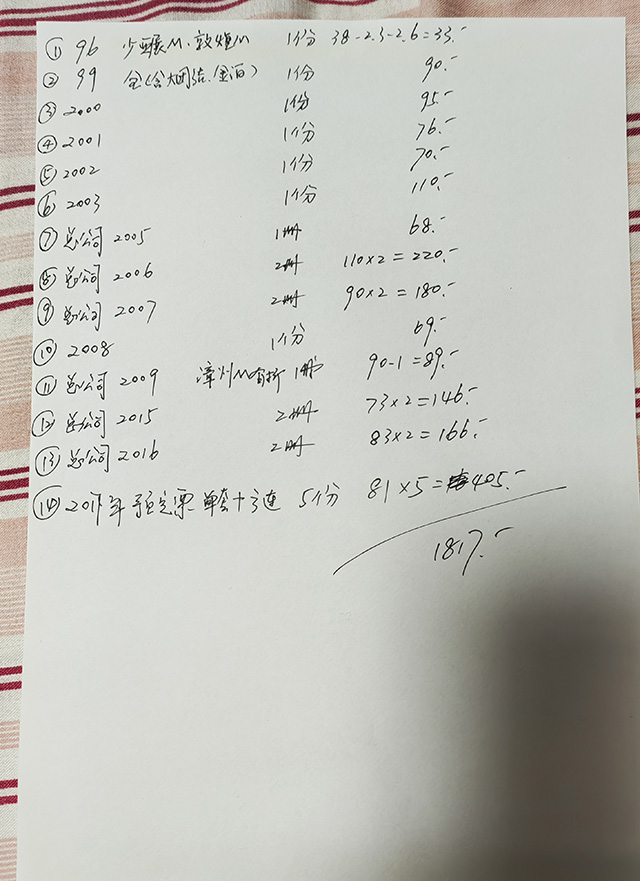 ① 96 少亚展M.敦煌M 1份 38-2.3-2.6=33.-
② 99 全(含大团结.金百) 1份 90.-
③ 2000 1份 95.-
④ 2001 1份 76.-
⑤ 2002 1份 70.-
⑥ 2003 1份 110.-
⑦ 总公司 2005 1册 68.-
⑧ 总公司 2006 2册 110×2=220.-
⑨ 总公司 2007 2册 90×2=180.-
⑩ 2008 1份 69.-
⑪ 总公司 2009 漳州M有折 1册 90-1=89.-
⑫ 总公司 2015 2册 73×2=146.-
⑬ 总公司 2016 2册 83×2=166.-
⑭ 2017年预定票 单套+方连 5份 81×5=405.-
1817.-